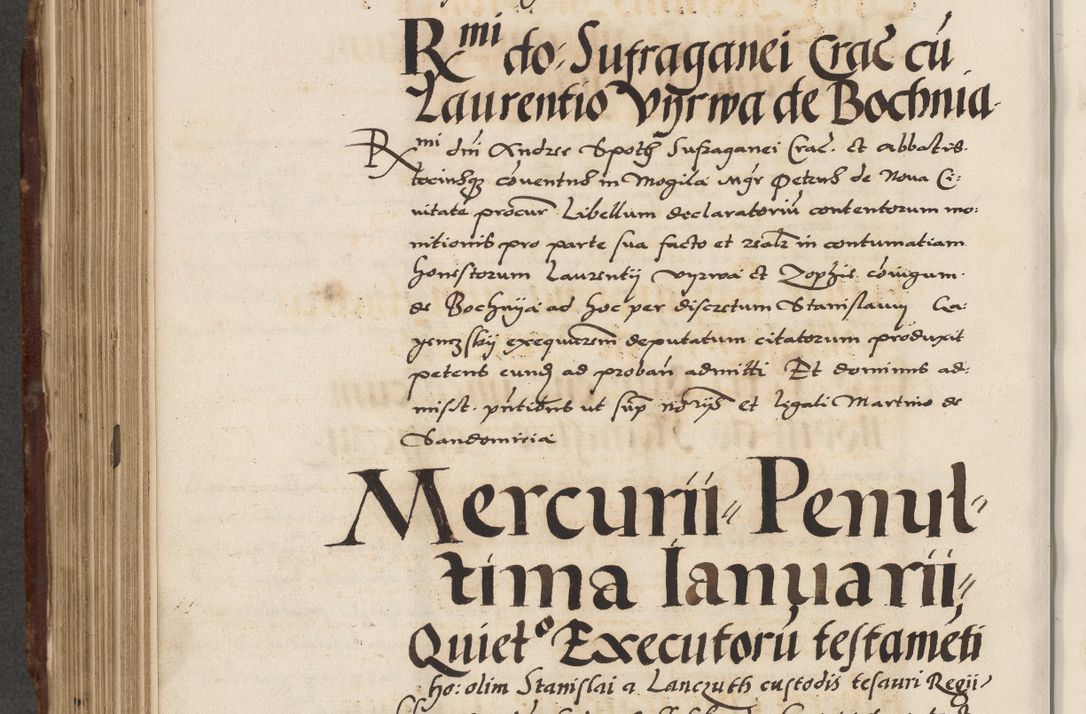 Rmi do: Sufraganei Crac̄ cū
Laurentio Vyrwa de Bochnia.
Rmi dn̄i Andree Spoth Sufraganei Crac̄. Et abbatis
totiusqȝ cōventus in Mogila Mgr̄ Petrus de Nova Ci:
vitate procur̄ Libellum declaratoriū contentorum mo:
nitionis pro parte sua facto et realr̄ in contumatiam
honestorum Laurentij vyrwa Et Zophie cōiugum
de Bochnija ad hoc per discretum Stanislaum
exequutorem̄ deputatum citatorum produxit
petens eund̄ ad proban̄ admitti Et dominus ad:
misit. pn̄tibus ut sup̄ no̅rijs et legali Martino de
Sandomiria
Mercurii Penul=
tima Ianuarii,
Quiet° Executorū testamēti
ho: olim Stanislai a Lanczuth custodis tesauri Regii